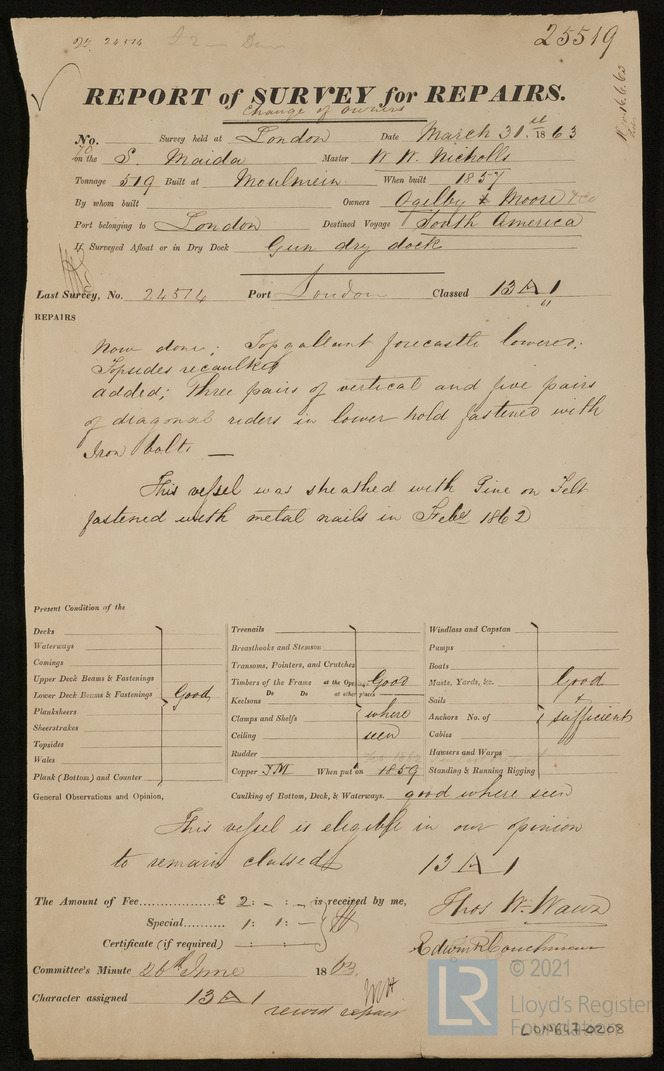 25519
REPORT of SURVEY for REPAIRS.
Change of Owners
No. 70 Survey held at London Date March 31.st 1863
on the S. Maida Master W. W. Nicholls
Tonnage 519 Built at Moulmein When built 1857
By whom built Owners Ogilby & Moore & Co
Port belonging to London Destined Voyage South America
If Surveyed Afloat or in Dry Dock Gun dry dock
Last Survey, No. 24514 Port London Classed 13 A 1
REPAIRS
Now done; Topgallant forecastle lowered;
Topsides recaulked
added; Three pairs of vertical and five pairs
of diagonal riders in lower hold fastened with
Iron bolts —
This vessel was sheathed with Pine on Felt
fastened with metal nails in Feby 1862
Present Condition of the
Decks
Waterways
Comings
Upper Deck Beams & Fastenings
Lower Deck Beams & Fastenings Good
Planksheers
Sheerstrakes
Topsides
Wales
Plank (Bottom) and Counter
Treenails
Breasthooks and Stemson
Transons, Pointers, and Crutches
Timbers of the Frame at the Good
Do Do at other places
Keelsons
Clamps and Shelfs where
Ceiling seen
Rudder
Copper YM When put on 1859
Windlass and Capstan
Pumps
Boats
Masts, Yards, &c. Good
Sails &
Anchors No. of sufficient
Cables
Hawsers and Warps
Standing & Running Rigging
General Observations and Opinion, Caulking of Bottom, Deck, & Waterways. good where seen
This vessel is eligible in our opinion
to remain classed 13 A 1
The Amount of Fee £ 2: - : - is received by me,
Special 1: 1: -
Certificate (if required)
Thos Wm Wawn
Edwin R Couchman
Committee's Minute 26th June 1863.
Character assigned 13 A 1
record repairs
© 2021
LR
Lloyd's Register
Foundation
LON647-0208